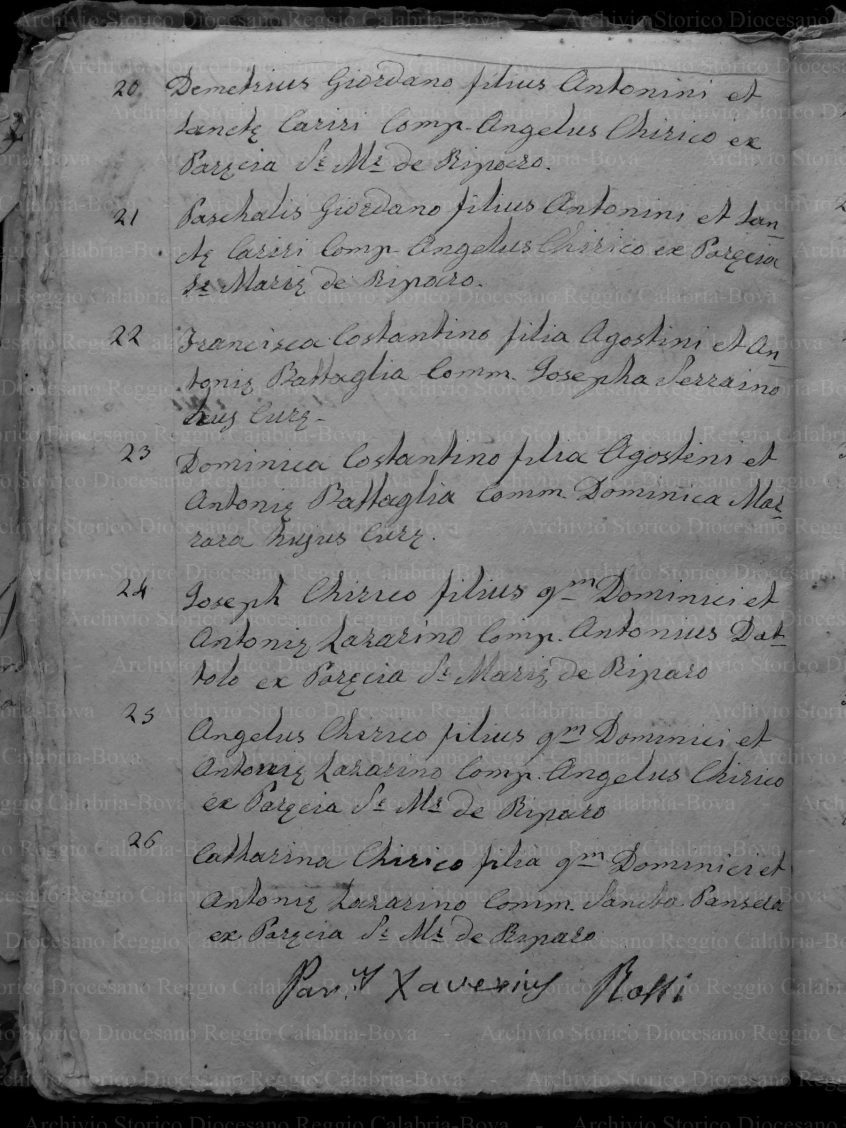 20 Demetrius Giordano filius Antonini et
Sanctę Cariri Comp. Angelus Chirico ex
Paręcia Sę Mę de Riparo.
21 Paschalis Giordano filius Antonini et San
ctę Cariri Comp. Angelus Chirico ex Paręcia
Sę Marię de Riparo.
22 Francisca Costantino filia Agostini et An
tonię Battaglia Comm. Josepha Serraino
hujus Curę.
23 Dominica Costantino filia Agostini et
Antonię Battaglia Comm. Dominica Mar
rara hujus Curę.
24 Joseph Chirico filius qm Dominici et
Antonię Lazarino Comp. Antonius Dat
tolo ex Paręcia Sę Marię de Riparo
25 Angelus Chirico filius qm Dominici et
Antonię Lazarino Comp. Angelus Chirico
ex Paręcia Sę Mę de Riparo
26 Catharina Chirico filia qm Dominici et
Antonię Lazarino Comm. Sancta Panzera
ex Paręcia Sę Mę de Riparo
Par.us Xaverius Rossi